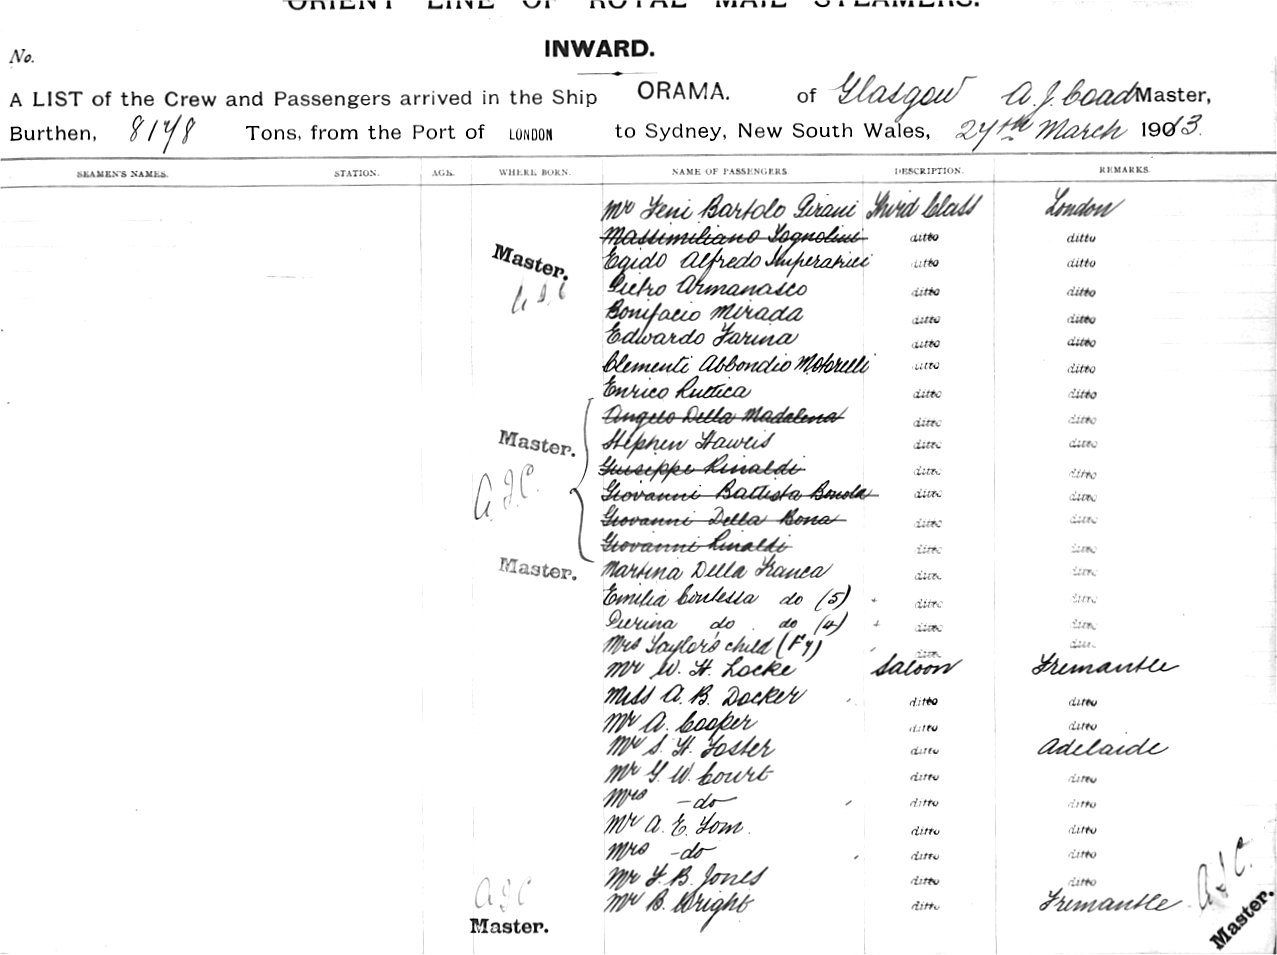 ORIENT LINE OF ROYAL MAIL STEAMERS.
INWARD.
No.
A LIST of the Crew and Passengers arrived in the Ship ORAMA. of Glasgow A. J. Coad Master,
Burthen, 8178 Tons, from the Port of LONDON to Sydney, New South Wales, 27th March 1913.
SEAMEN'S NAMES. STATION. AGE. WHERE BORN. NAME OF PASSENGERS DESCRIPTION. REMARKS
Mr Bartolo Pirani Third Class London
Massimiliano Tognolini ditto ditto
Master. Egido Alfredo Imperatrici ditto ditto
Pietro Armanasco ditto ditto
Bonifacio Mirada ditto ditto
Edwardo Farina ditto ditto
Clementi Abbondio ditto ditto
Enrico Ruttica ditto ditto
Angelo Della Madalena ditto ditto
Master. Stephen Haweis ditto ditto
Giuseppe Rinaldi ditto ditto
A. J. C. Giovanni Battista Bonola ditto ditto
Giovanni Della Bona ditto ditto
Giovanni Rinaldi ditto ditto
Master. Martina Della Franca ditto ditto
Emilia Contessa do (5) ditto ditto
Pierina do do (4) ditto ditto
Mrs Taylor's child ditto ditto
Mr W. H. Locke Saloon Fremantle
Miss A. B. Docker ditto ditto
Mr A. Cooper ditto ditto
Mr S. H. Foster ditto Adelaide
Mr G. W. Court ditto ditto
Mrs - do ditto ditto
Mr A. E. Tom ditto ditto
Mrs - do ditto ditto
A J C Mr F. B. Jones ditto ditto
Mr B. Wright ditto Fremantle A J C.
Master. Master.